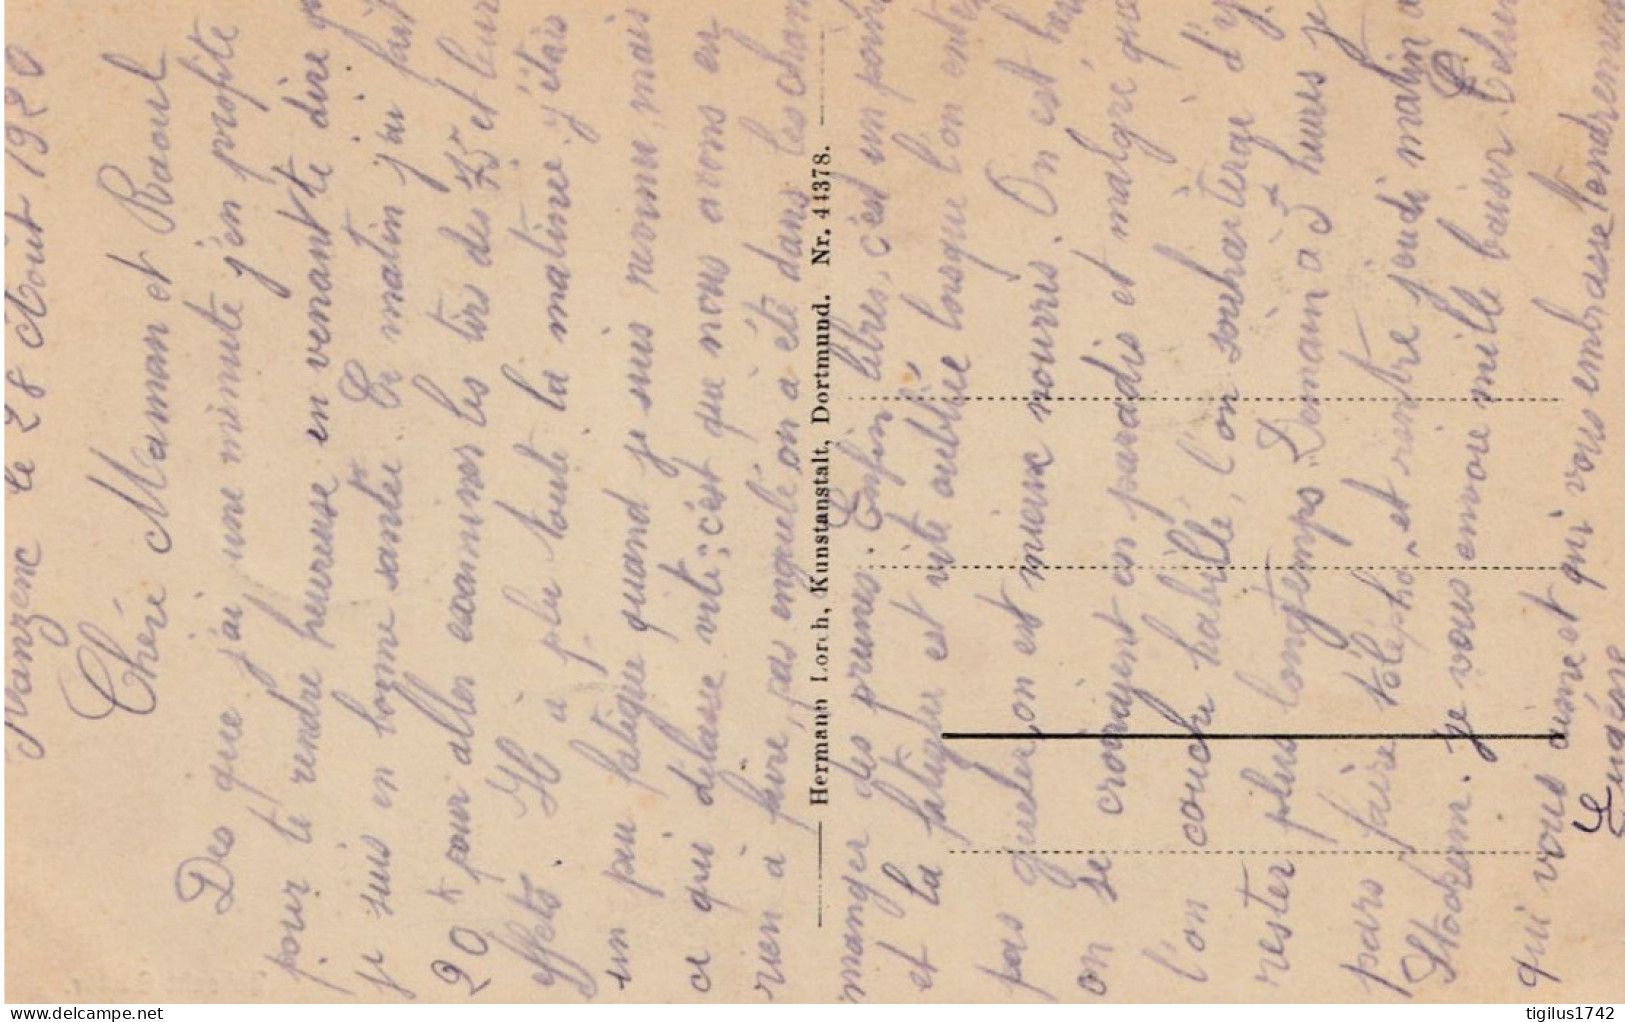 le 28 Août 1920
Chère Maman et Raoul
Des que j'ai une minute j'en profite
pour te rendre heureuse en venant te dire
je suis en bonne santée. Ce matin j'ai fait
20 k pour aller examiner les tirs des 75 et leurs
effets. Il a plu toute la matinée, j'étais
un peu fatiguée quand je suis revenu, mais
ce qui délasse vite; c'est que nous avons en
rien à faire, pas on a été dans les
manger des prunes. Enfin libres, c'est un
et la fatigue est vite oubliée lorsque l'on
pas gueter, on est mieux nourris. On est
on se croirayent en paradis et malgré que
l'on couche habillé, l'on souhaiterai d'y
rester plus longtemps. Demain à 5 heures je
pars faire télépho. et rentre jeudi matin a
Stockum. je vous envoie mille baiser. Celui
qui vous aime et qui vous embrasse tendrement
Eugène
Hermann Lorch, Kunstanstalt, Dortmund. Nr. 44378.
www.delcampe.net
tigilus1742